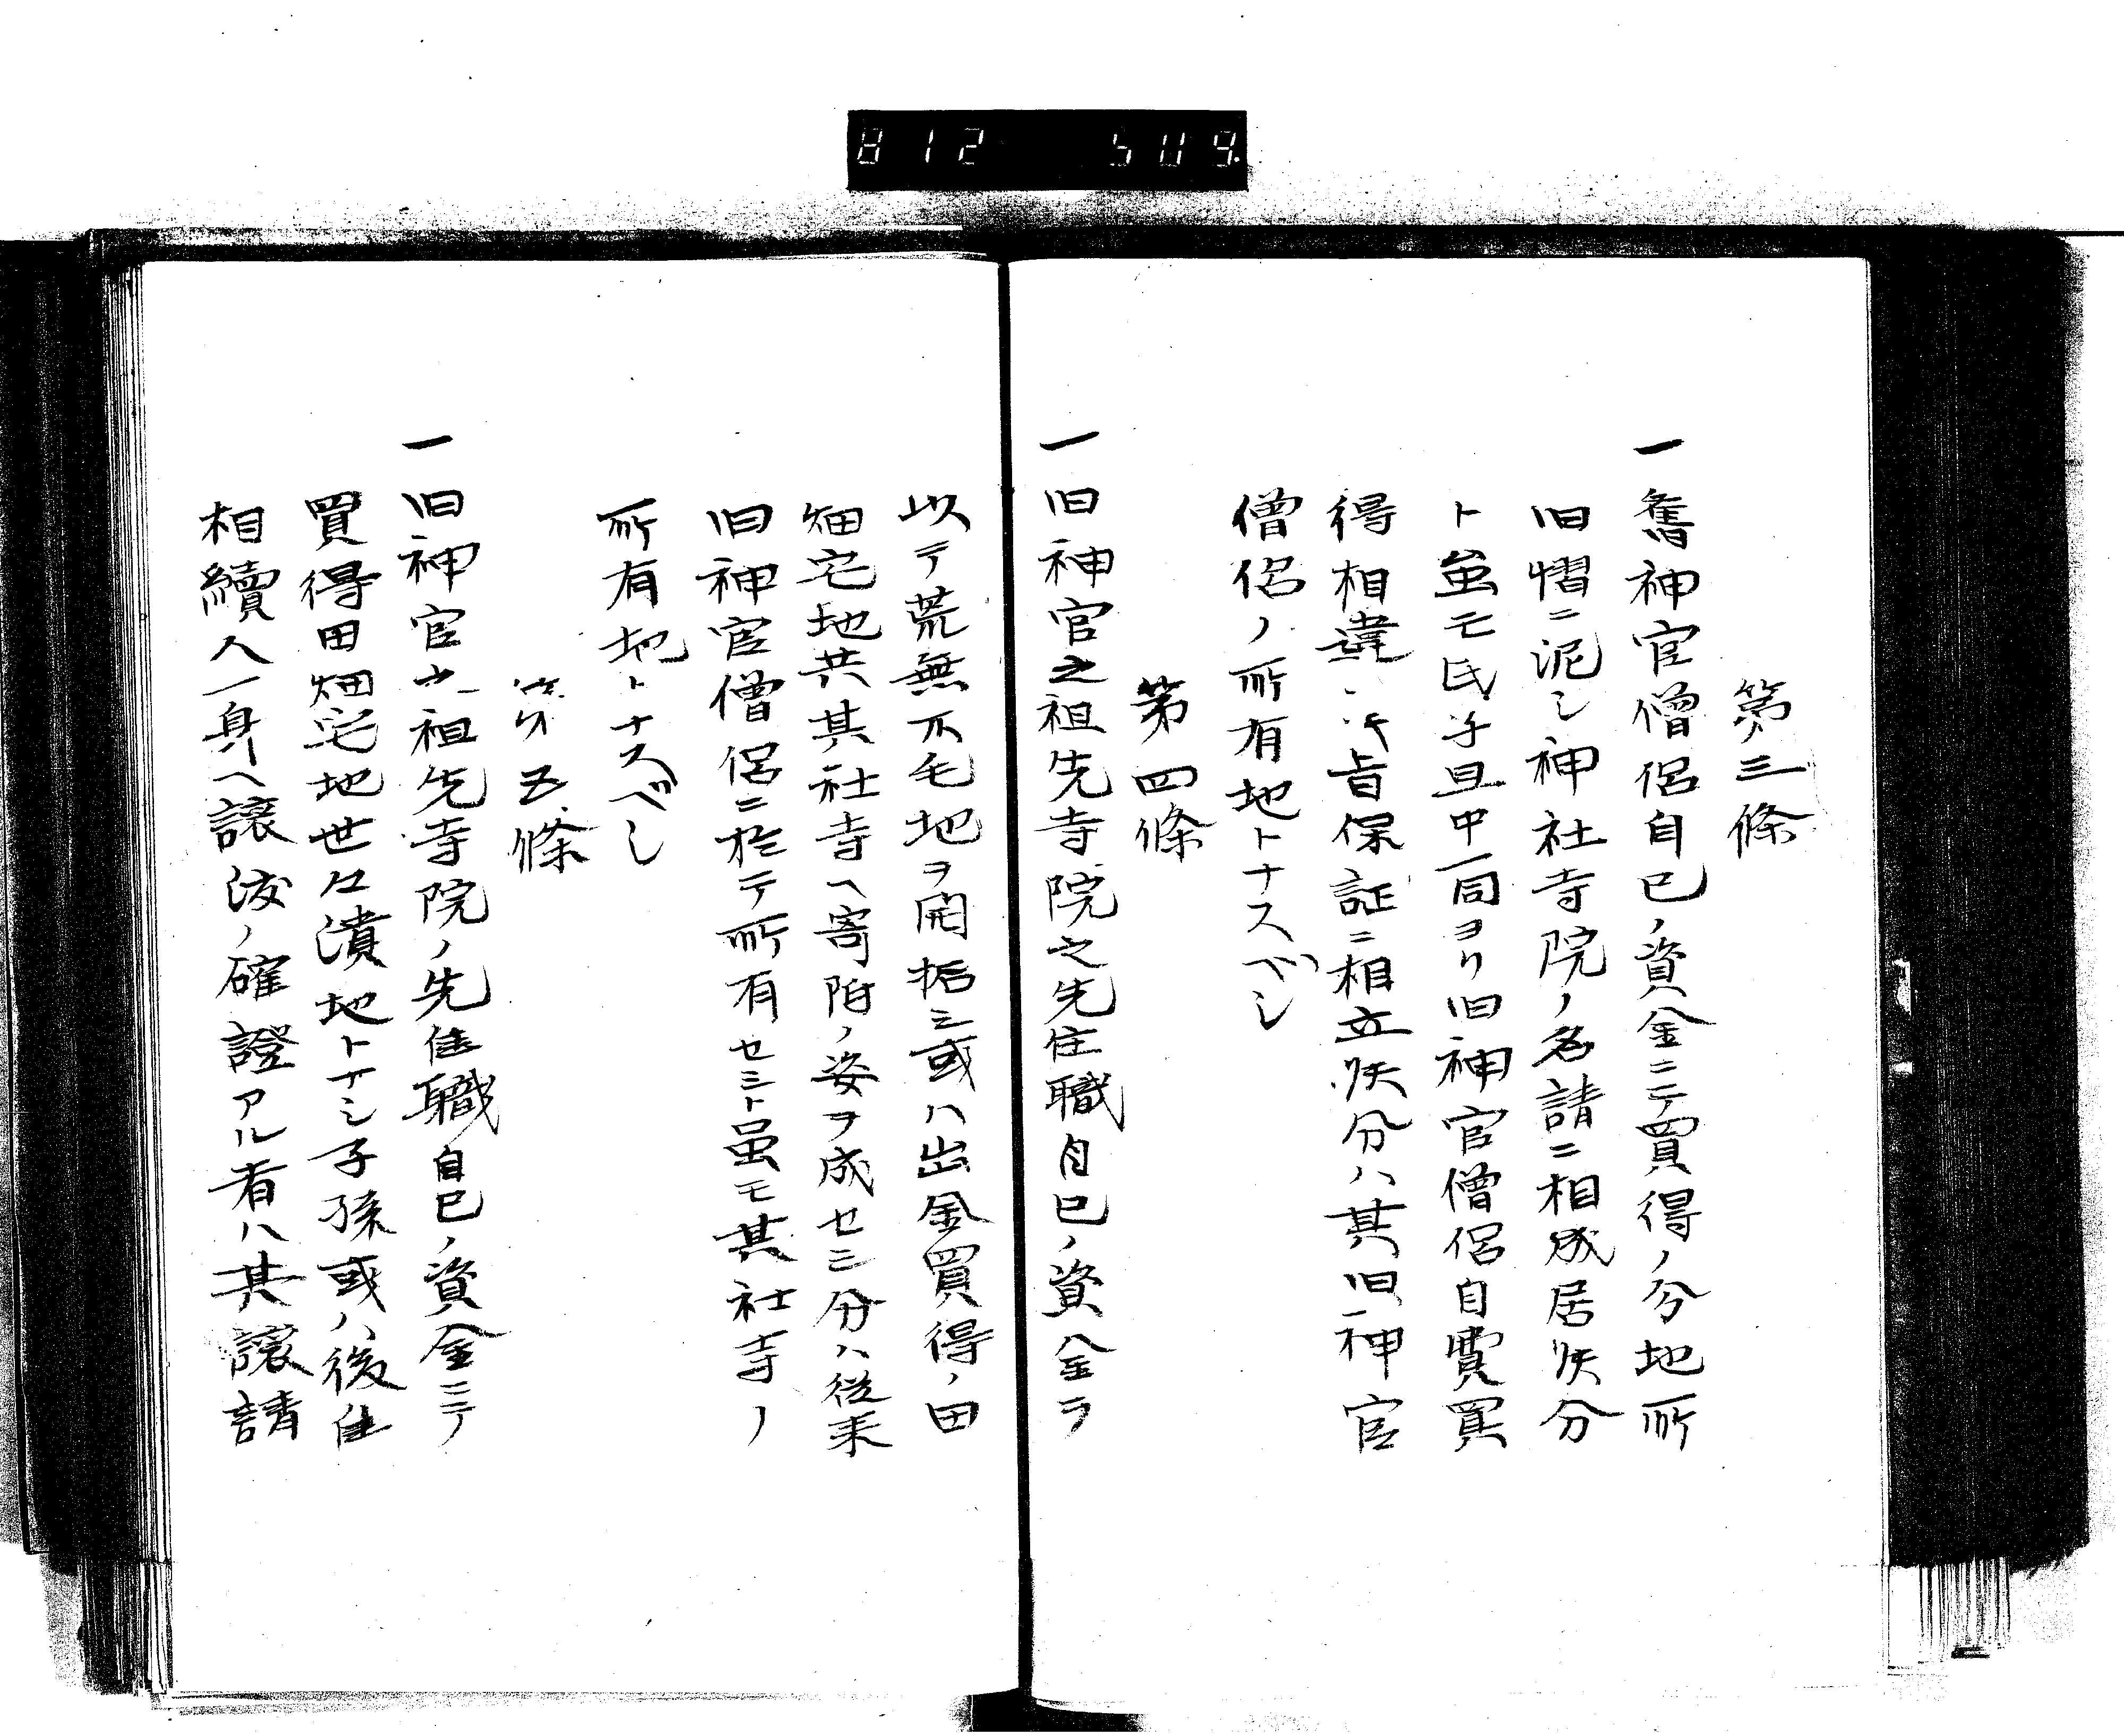 812 509
第三條
一舊神官僧侶自己ノ資金ニテ買得ノ分地所
旧慣ニ泥シ神社寺院ノ名請ニ相成居候分
ト虽モ氏子旦中一同ヨリ旧神官僧侶自費買
得相違 旨保証ニ相立候分ハ其旧神官
僧侶ノ所有地トナスベシ
第四條
一旧神官之祖先寺院之先住職自己ノ資金ヲ
以テ荒無不毛地ヲ開拓シ或ハ出金買得ノ田
畑宅地共其社寺ヘ寄附ノ姿ヲ成セシ分ハ従来
旧神官僧侶ニ於テ所有セシト虽モ其社寺ノ
所有地トナスベシ
第五條
一旧神官之祖先寺院ノ先住職自己ノ資金ニテ
買得田畑宅地世々潰地トナシ子孫或ハ後住
相續人一身ヘ譲渡ノ確證アル者ハ其譲請